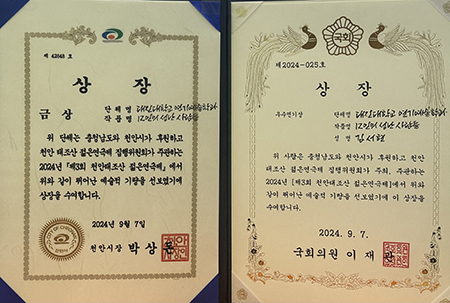 제 42848 호
상 장
금 상
단 체 명 대진대학교 연기예술학과
작 품 명 12인의 성난 사람들
위 단체는 충청남도와 천안시가 후원하고
천안 태조산 젊은연극제 집행위원회가 주관하는
2024년 「제3회 천안태조산 젊은연극제」에서
위와 같이 뛰어난 예술적 기량을 선보였기에
상장을 수여합니다.
2024년 9월 7일
천안시장 박상돈
국회
제2024-025호
상 장
우수연기상
단체명 대진대학교 연기예술학과
작품명 12인의 성난 사람들
성 명 김서현
위 사람은 충청남도와 천안시가 후원하고 천안
태조산 젊은연극제 집행위원회가 주최, 주관하는
2024년 [제3회 천안태조산 젊은연극제]에서 위와
같이 뛰어난 예술적 기량을 선보였기에 이 상장을
수여합니다.
2024. 9. 7.
국회의원 이재관